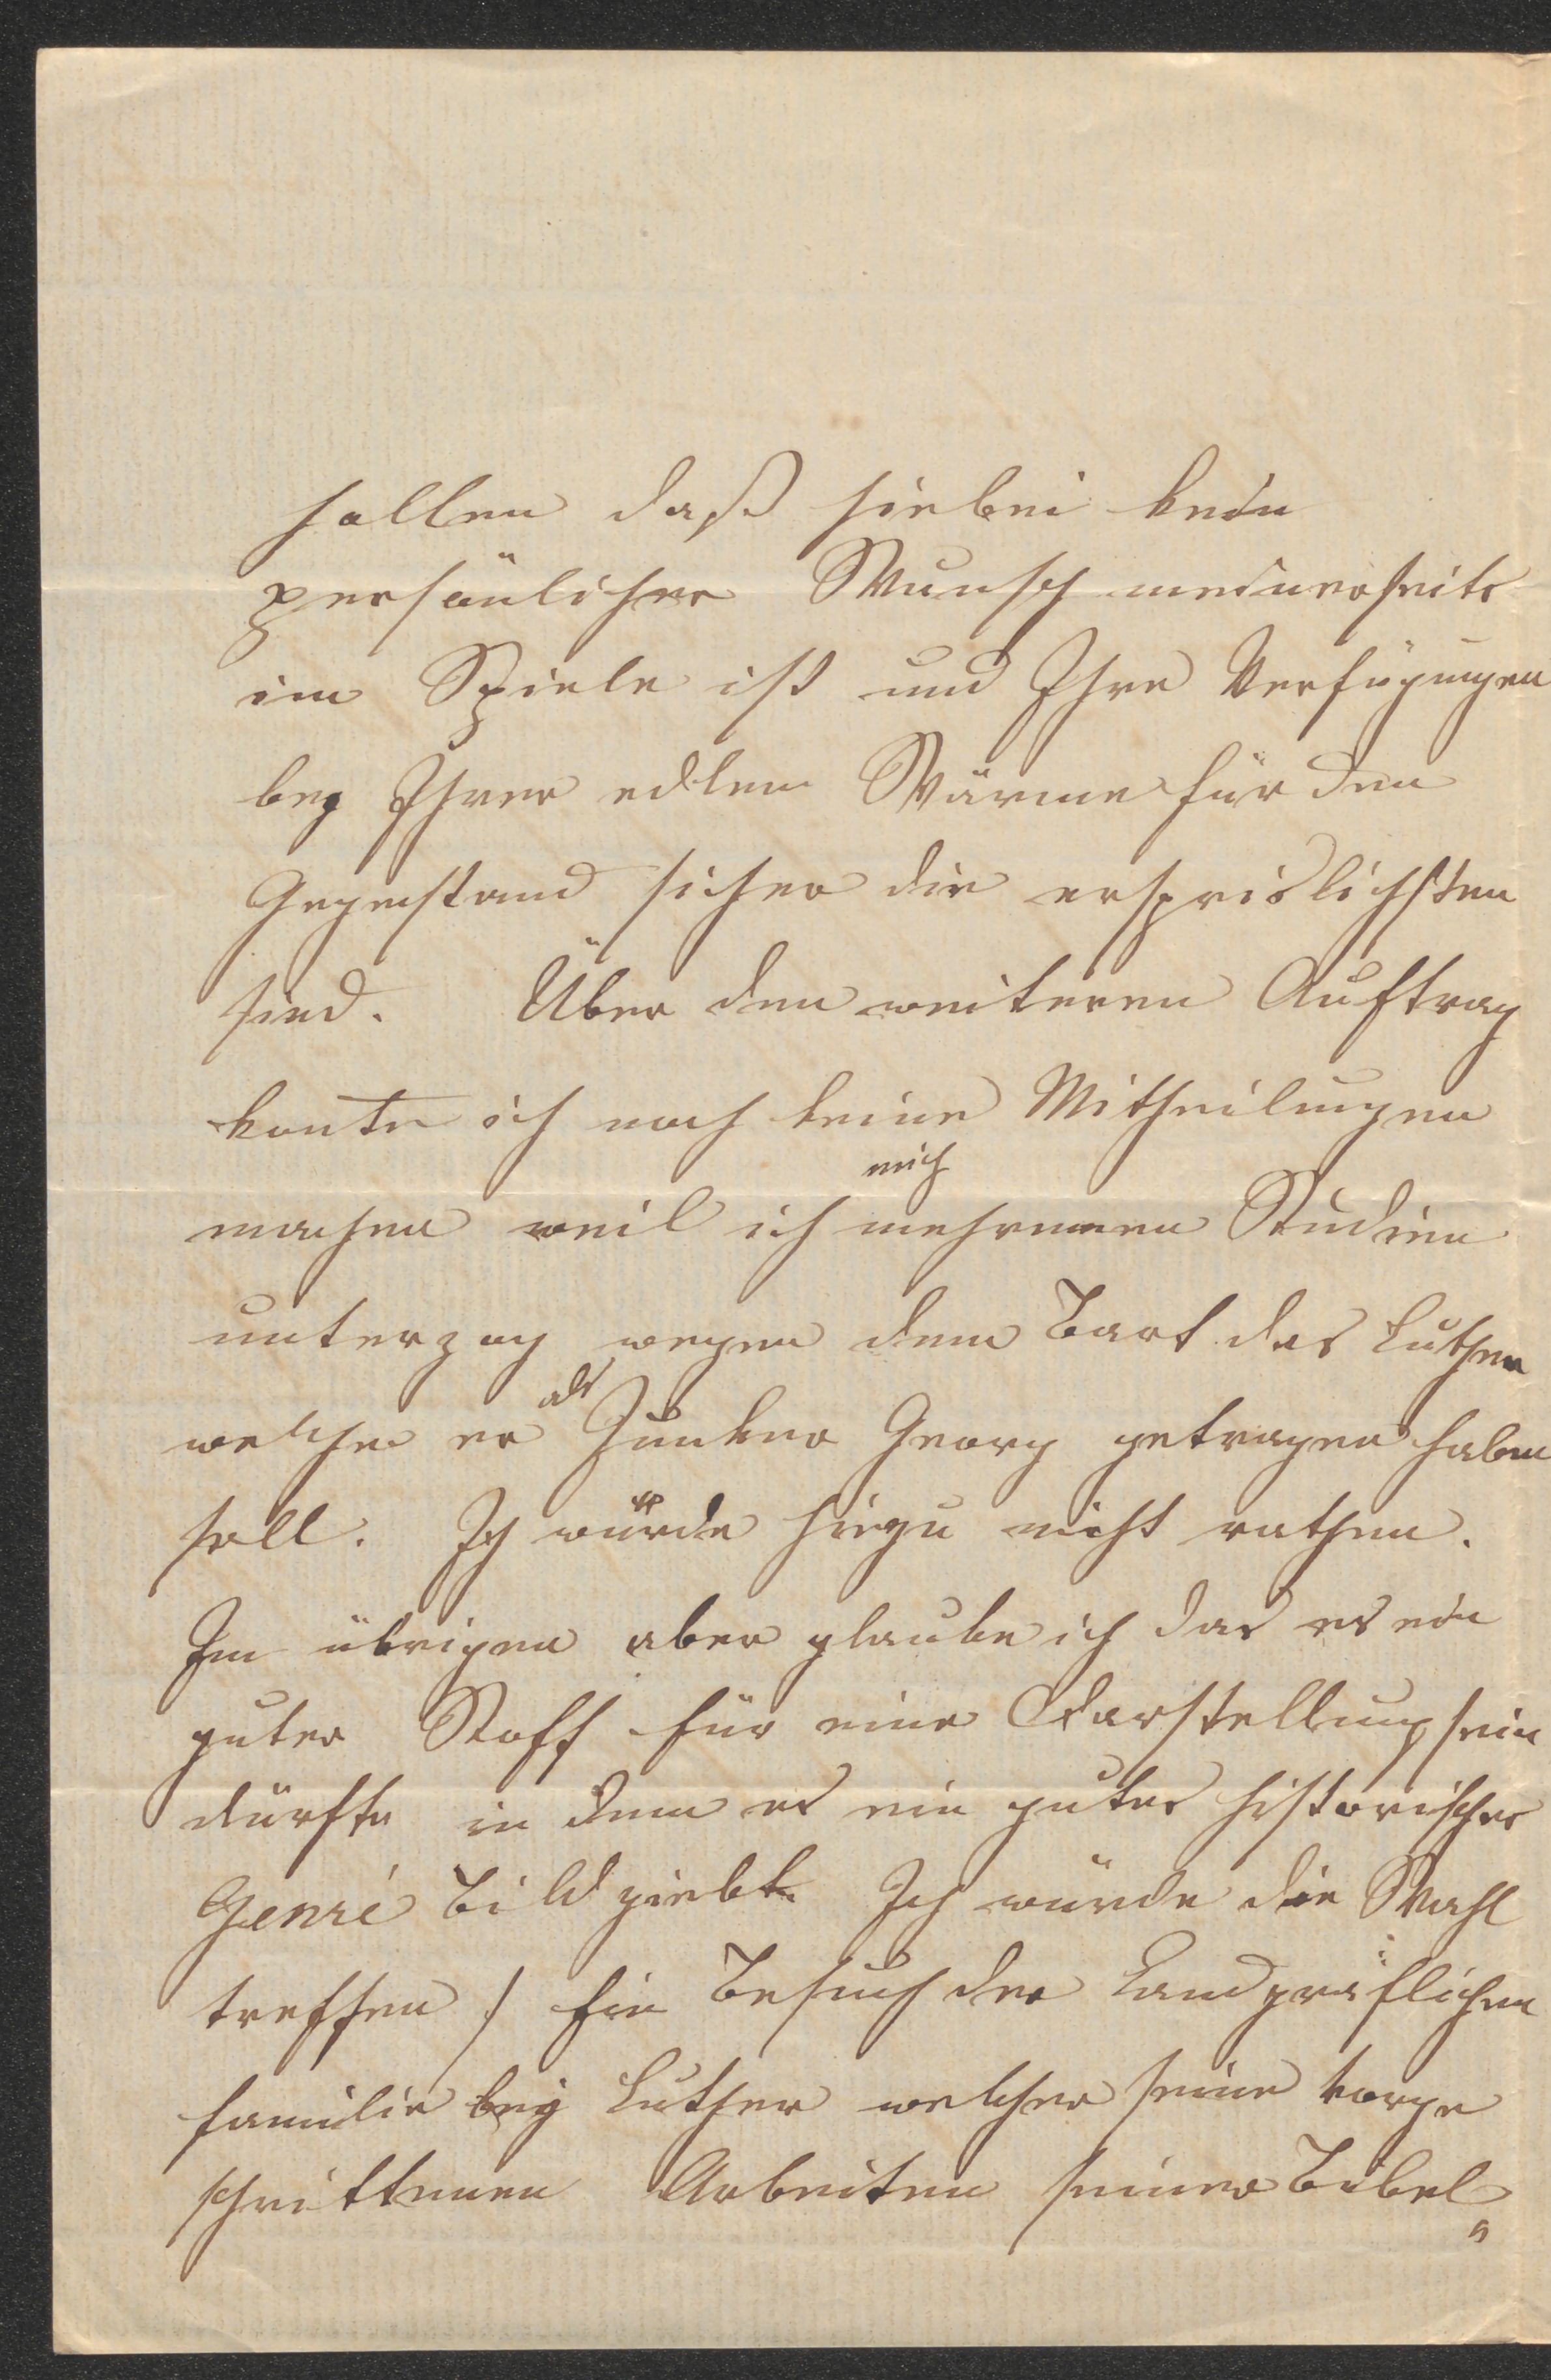 hallen daß hiebei kein
persönlicher Wunsch meinerseits
im Spiele ist und Ihre Verfügungen
bey Ihrer edlen Wärme für den
Gegenstand sicher die ersprislichsten
sind. Über den weiteren Auftrag
konte ich noch keine Mittheilungen
mich
machen weil ich mehreren Studien
unterzog wegen dem Bart des Luther
als
welchen er Junker Georg getragen haben
soll. Ich würde hiezu nicht rathen.
Im übrigen aber glaube ich das es ein
guter Stoff für eine Darstellung sein
dürfte in dem es ein gutes historisches
Genré Bild giebt. Ich würde die Wahl
treffen / Ein Besuch der Landgräflichen
Familie bey Luther welcher seine vorge
schrittenen Arbeiten seiner Bibel